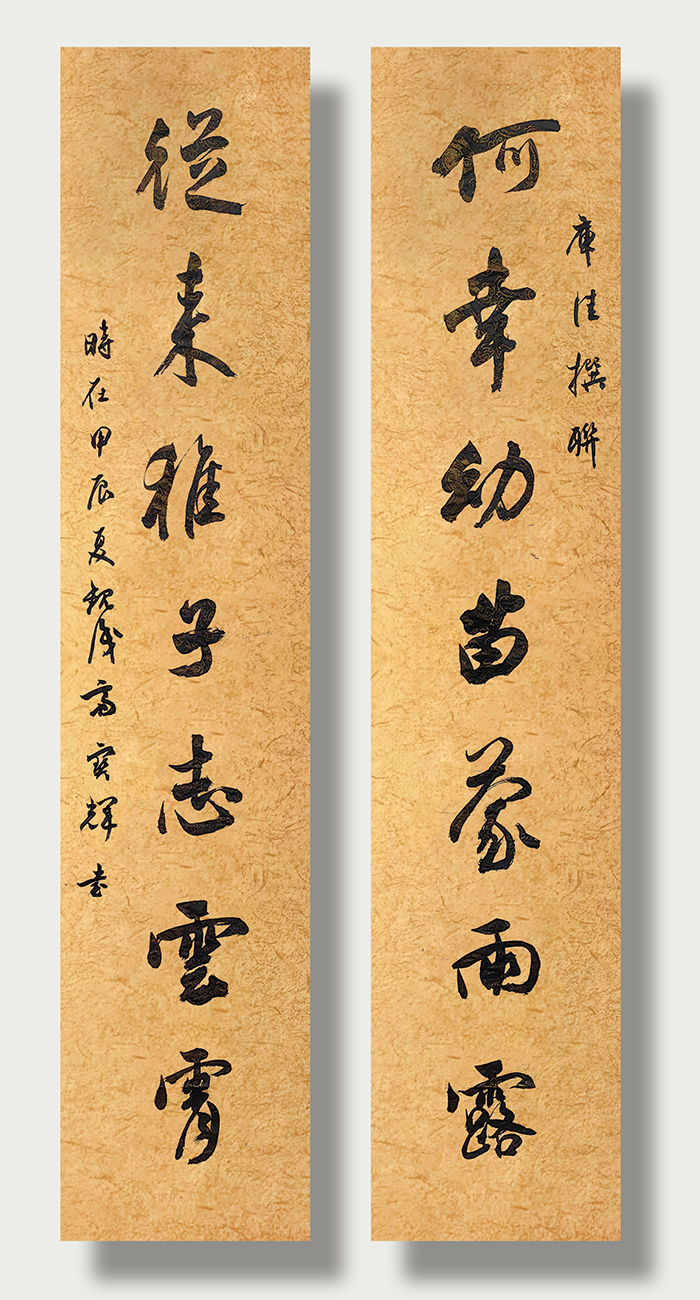 庫佳撰聯
何幸幼苗蒙雨露
從來稚子志雲霄
時在甲辰夏寶輝書